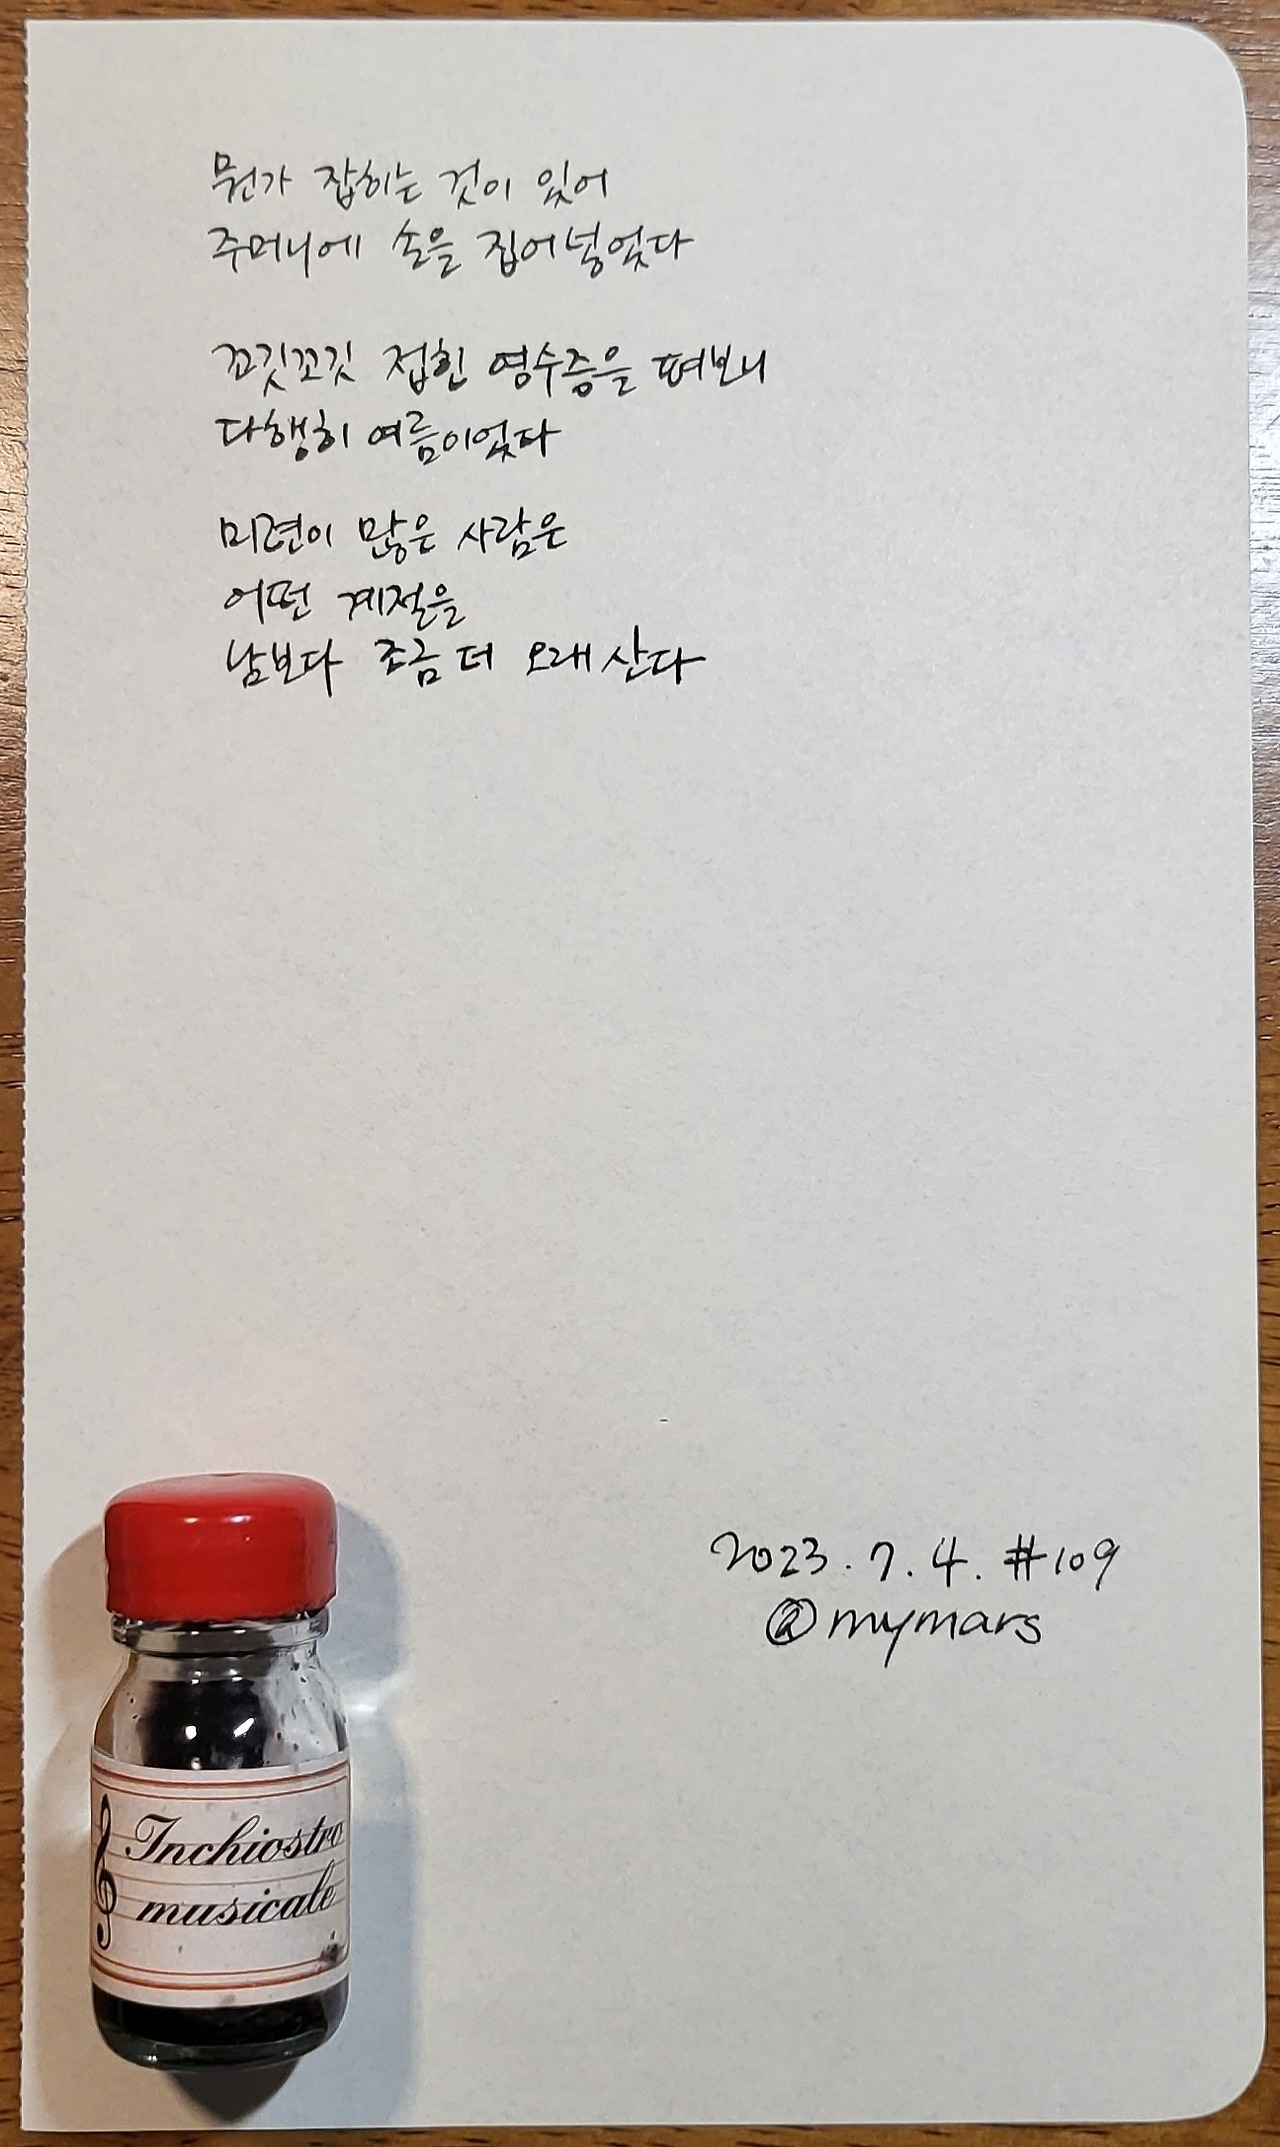 뭔가 잡히는 것이 있어
주머니에 손을 집어넣었다
꼬깃꼬깃 접힌 영수증을 펴보니
다행히 여름이었다
미련이 많은 사람은
어떤 계절을
남보다 조금 더 오래 산다
2023.7.4. #109
@mymars
Inchiostro
musicale